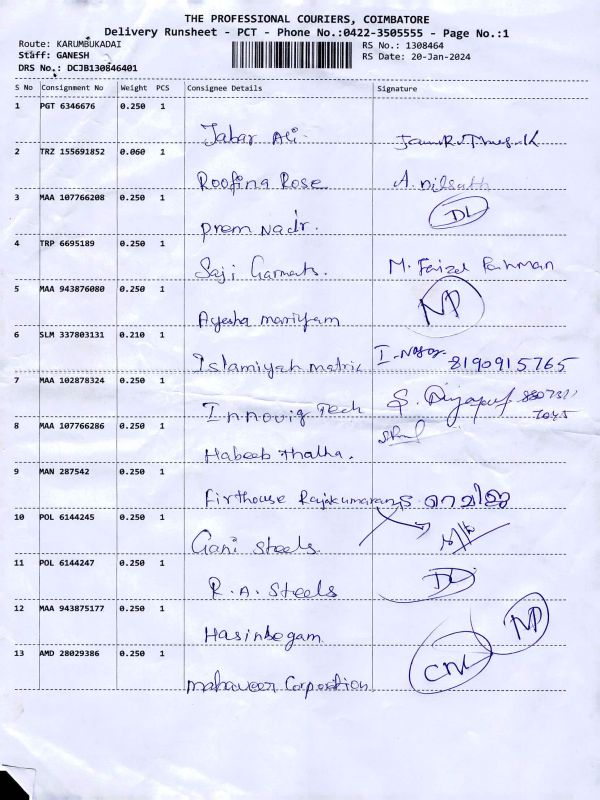 THE PROFESSIONAL COURIERS, COIMBATORE
Delivery Runsheet - PCT - Phone No.:0422-3505555 - Page No.:1
Route: KARUMBUKADAI RS No.: 1308464
Staff: GANESH RS Date: 20-Jan-2024
DRS No.: DCJB130846401
S No Consignment No Weight PCS Consignee Details Signature
1 PGT 6346676 0.250 1
Jabar Ali
2 TRZ 155691852 0.060 1
Roofing Rose A. Nilsath
3 MAA 107766208 0.250 1
DL
Prem Nadr.
4 TRP 6695189 0.250 1
Saji Garments. M. Faizal Rahman
5 MAA 943876080 0.250 1
NP
Ayesha mariyam
6 SLM 337803131 0.210 1
Islamiyah matric 8190915765
7 MAA 102878324 0.250 1
Innovig Tech
8 MAA 107766286 0.250 1
Habeeb Thalha.
9 MAN 287542 0.250 1
Firthouse Rajakumaran
10 POL 6144245 0.250 1
Gani Steels
11 POL 6144247 0.250 1
DL
R.A. Steels
12 MAA 943875177 0.250 1
NP
Hasinbegam
13 AMD 28029386 0.250 1
CNL
mahaveer Corporation